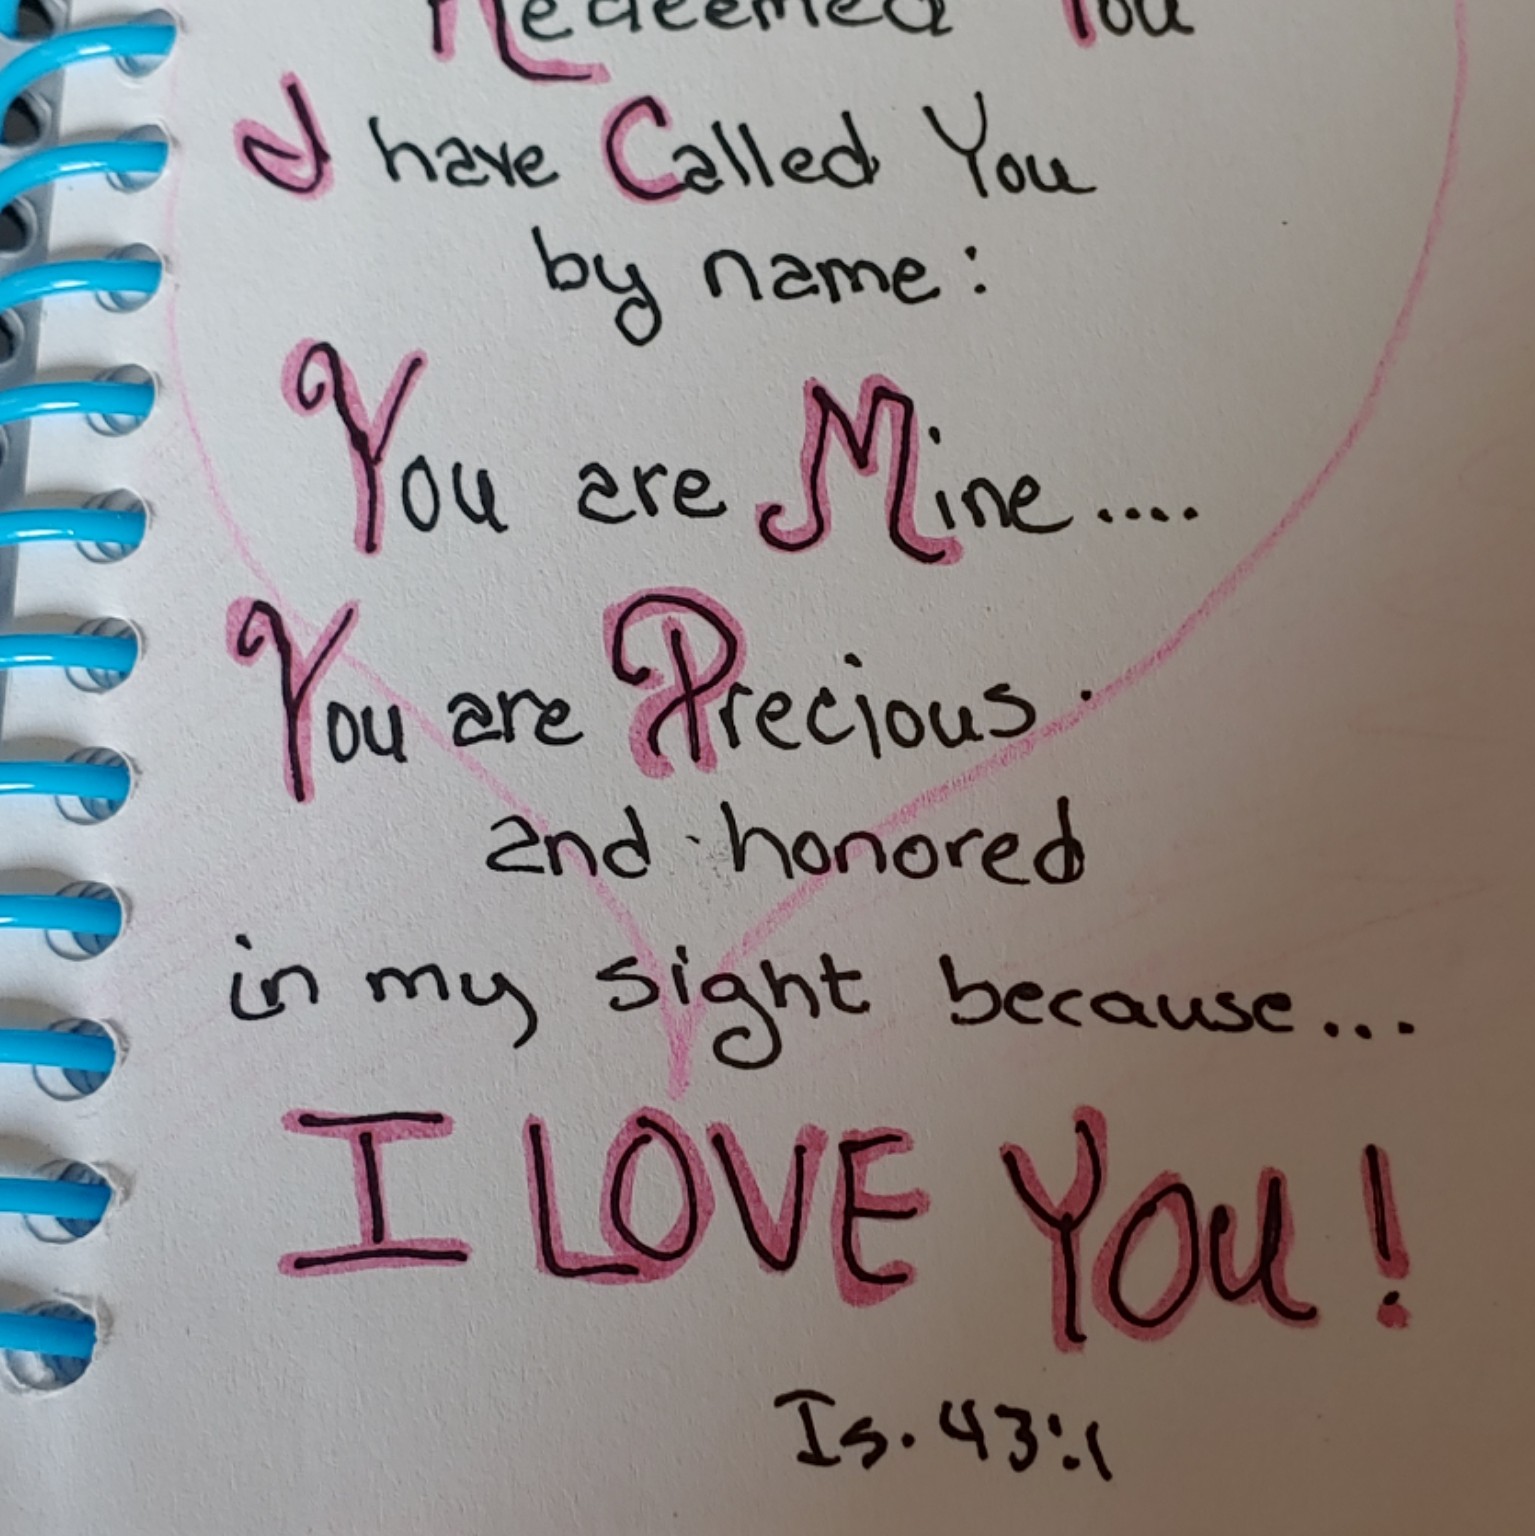 Redeemed You
I have Called You
by name:
You are Mine....
You are Precious.
and honored
in my sight because...
I LOVE YOU!
Is. 43:1